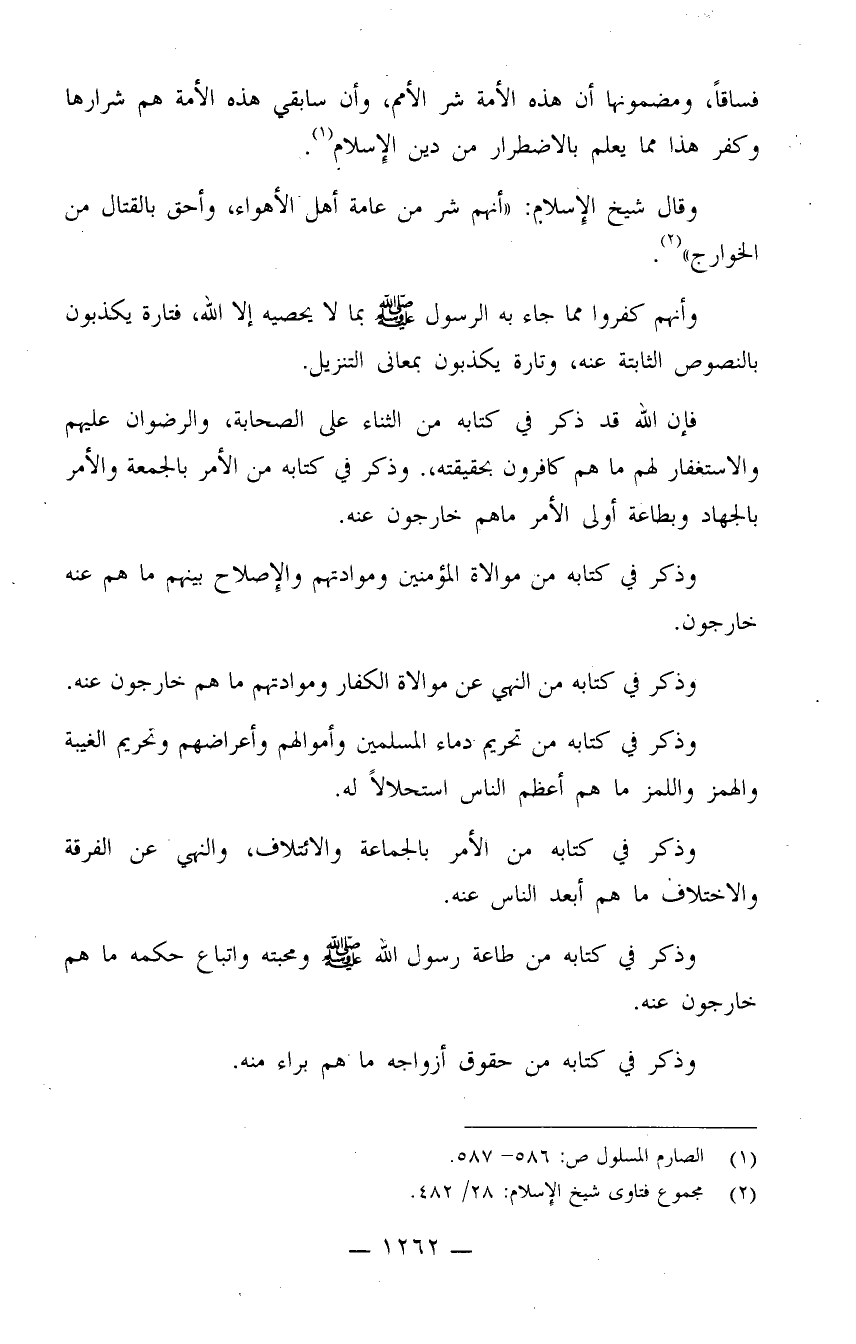 فساقاً، ومضمونها أن هذه الأمة شر الأمم، وأن سابقي هذه الأمة هم شرارها
وكفر هذا مما يعلم بالاضطرار من دين الإسلام(١).
وقال شيخ الإسلام: «أنهم شر من عامة أهل الأهواء، وأحق بالقتال من
الخوارج»(٢).
وأنهم كفروا مما جاء به الرسول ﷺ بما لا يحصيه إلا الله، فتارة يكذبون
بالنصوص الثابتة عنه، وتارة يكذبون بمعانى التنزيل.
فإن الله قد ذكر في كتابه من الثناء على الصحابة، والرضوان عليهم
والاستغفار لهم ما هم كافرون بحقيقته،. وذكر في كتابه من الأمر بالجمعة والأمر
بالجهاد وبطاعة أولى الأمر ماهم خارجون عنه.
وذكر في كتابه من موالاة المؤمنين وموادتهم والإصلاح بينهم ما هم عنه
خارجون.
وذكر في كتابه من النهي عن موالاة الكفار وموادتهم ما هم خارجون عنه.
وذكر في كتابه من تحريم دماء المسلمين وأموالهم وأعراضهم وتحريم الغيبة
والهمز واللمز ما هم أعظم الناس استحلالاً له.
وذكر في كتابه من الأمر بالجماعة والائتلاف، والنهي عن الفرقة
والاختلاف ما هم أبعد الناس عنه.
وذكر في كتابه من طاعة رسول الله ﷺ ومحبته واتباع حكمه ما هم
خارجون عنه.
وذكر في كتابه من حقوق أزواجه ما هم براء منه.
(١) الصارم المسلول ص: ٥٨٦– ٥٨٧.
(٢) مجموع فتاوى شيخ الإسلام: ٢٨/ ٤٨٢.
— ١٢٦٢ —